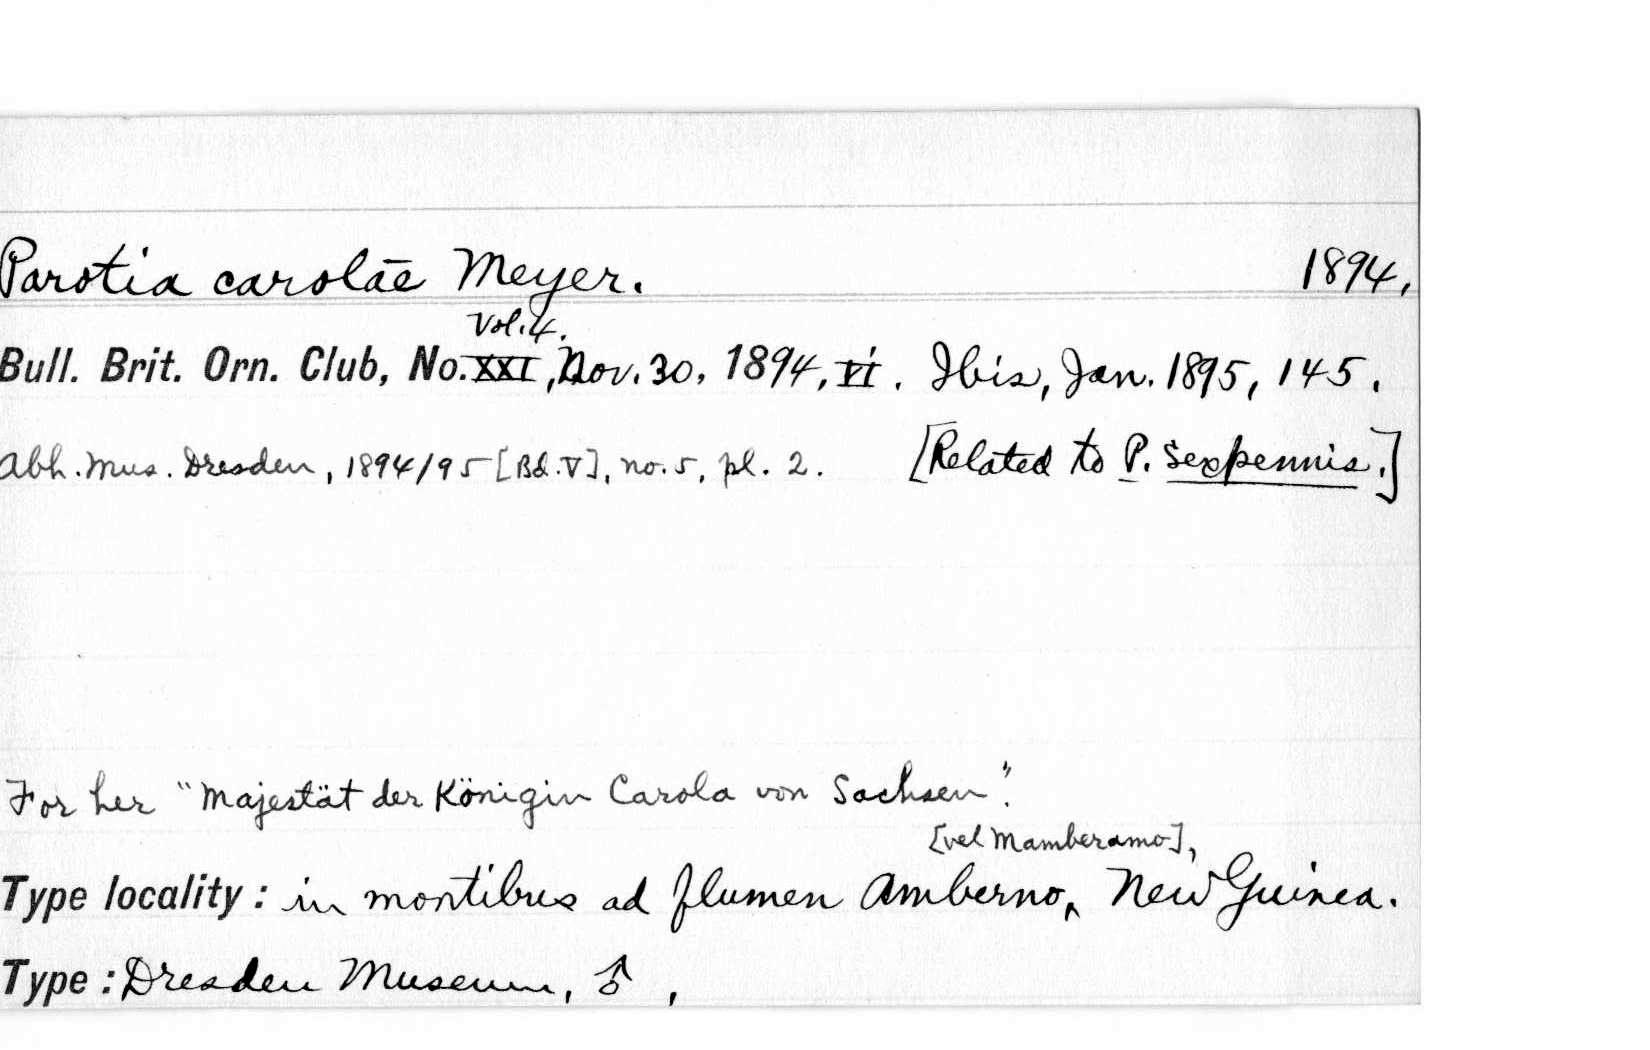 Parotia carolae Meyer. 1894.
Vol. 4.
Bull. Brit. Orn. Club, No. XXI, Nov. 30, 1894, vi. Ibis, Jan. 1895, 145.
Abh. Mus. Dresden, 1894/95 [Bd. V], no. 5, pl. 2. [Related to P. sexpennis.]
For her "Majestät der Königin Carola von Sachsen".
[vel Mamberamo],
Type locality: in montibus ad flumen Amberno, New Guinea.
Type: Dresden Museum, ♂,